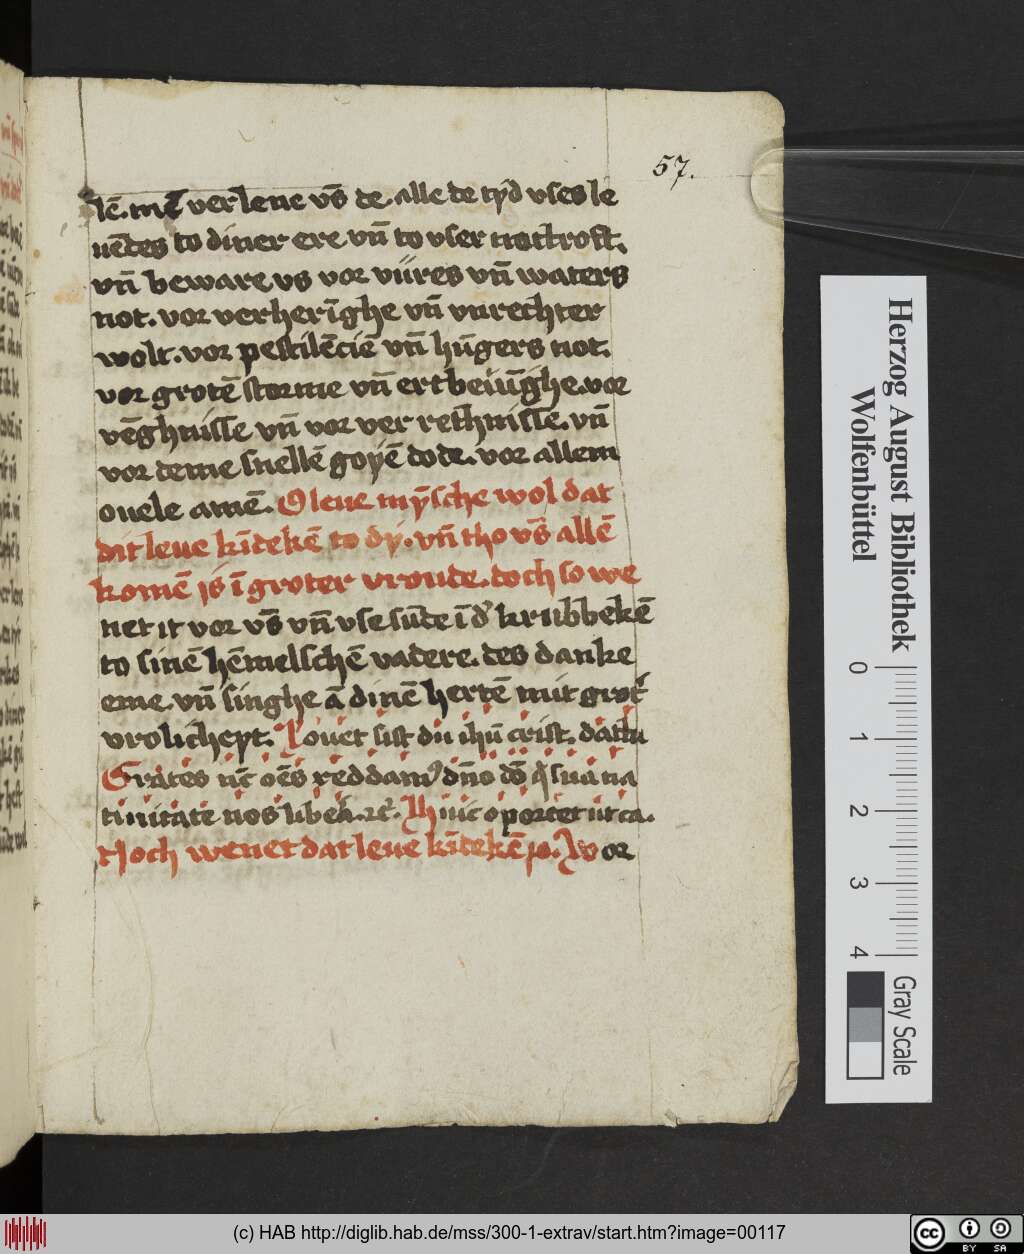 57.
lē. mē verlene vs̄ de. alle de tyd vses le
uēdes to diner ere vn̄ to vser nottroft.
vn̄ beware vs vor vüres vn̄ waters
not. vor verherīghe vn̄ vnrechter
wolt. vor pestilēciē vn̄ hūgers not.
vor grotē storme vn̄ ertbeiūghe. vor
vēghnisse vn̄ vor ver rethnisse. vn̄
vor deme snellē goyē dode. vor allem
ouele amē. O leue mȳsche wol dat
dit leue kīdekē to dy. vn̄ tho vs̄ allē
komē js ī groter vroude. doch so we
net it vor vs̄ vn̄ vse sūde ī d' krubbekē
to sinē hēmelschē vadere. des danke
eme. vn̄ singhe ā dinē hertē mit grot'
vrolicheyt. Louet sist du ihū crist. dattu
Grates nūc oēs reddam9 dn̄o dō q̄ sua na
tiuitate nos libeā. ꝛc̄. Huic oportet ut ca.
Noch wenet dat leue kīdekē jo. Vor
Herzog August Bibliothek
Wolfenbüttel
0 1 2 3 4
Gray Scale
(c) HAB http://diglib.hab.de/mss/300-1-extrav/start.htm?image=00117
cc BY SA